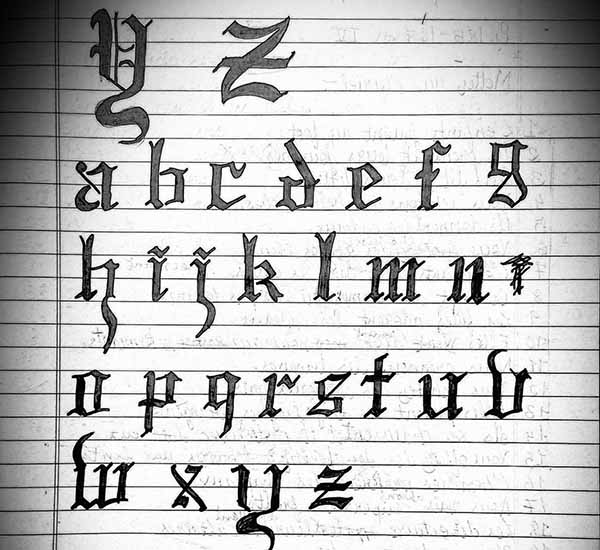 Y Z
a b c d e f g
h i j k l m n
o p q r s t u v
w x y z